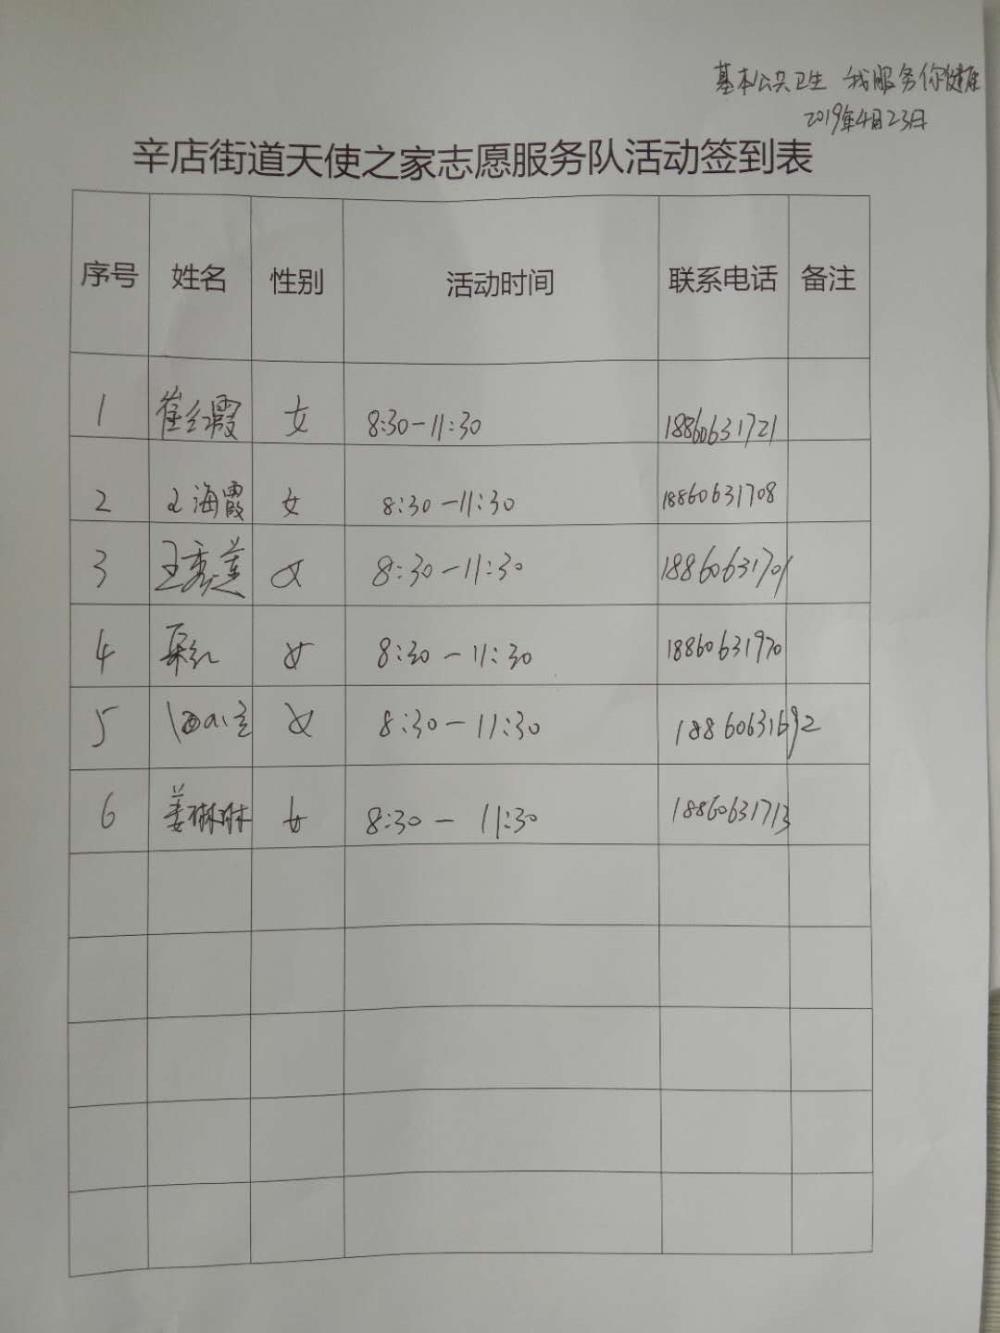 基本公共卫生 我服务你健康
2019年4月23日
辛店街道天使之家志愿服务队活动签到表
序号 姓名 性别 活动时间 联系电话 备注
1 崔红霞 女 8:30-11:30 18860631721
2 王海霞 女 8:30-11:30 18860631708
3 王秀莲 女 8:30-11:30 18860631701
4 女 8:30-11:30 18860631970
5 女 8:30-11:30 18860631692
6 姜琳琳 女 8:30-11:30 18860631713